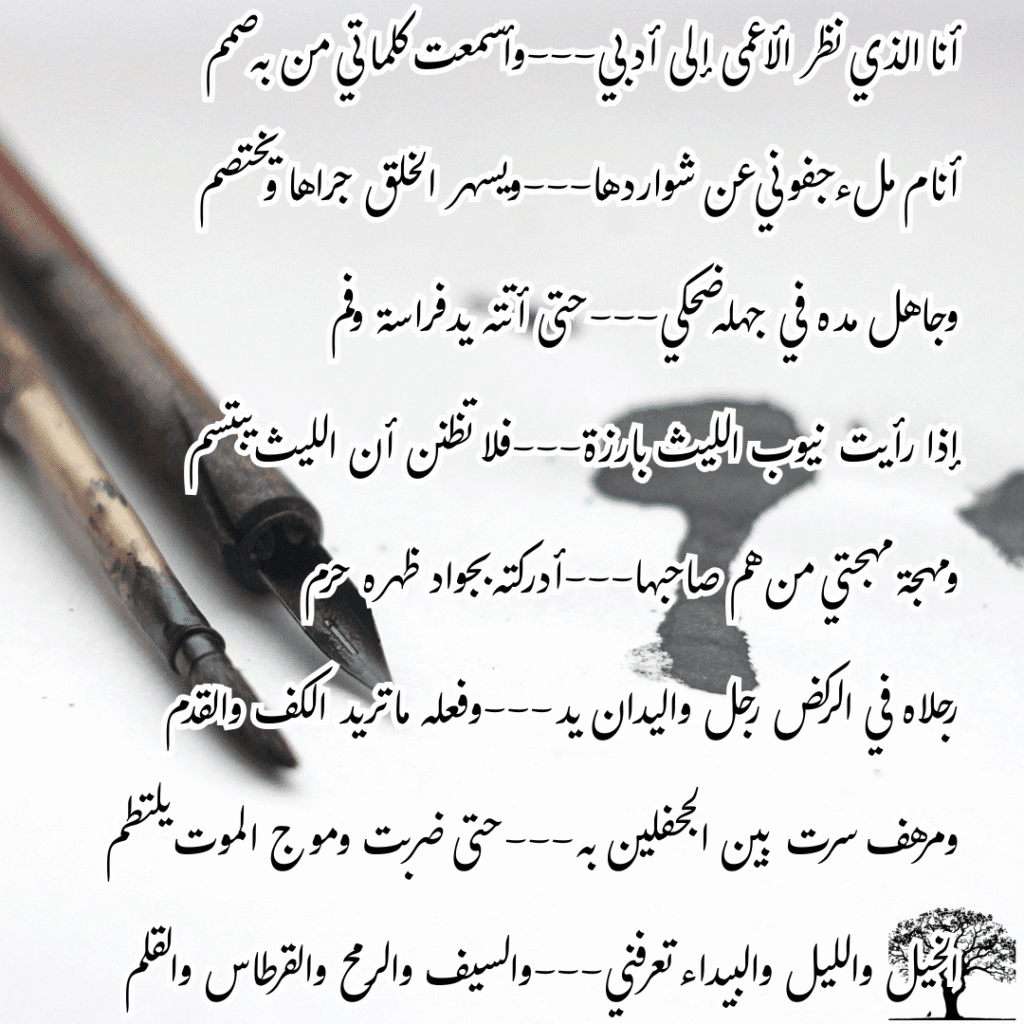 أنا الذي نظر الأعمى إلى أدبي---وأسمعت كلماتي من به صمم
أنام ملء جفوني عن شواردها---ويسهر الخلق جراها ويختصم
وجاهل مده في جهله ضحكي---حتى أتته يد فراسة وفم
إذا رأيت نيوب الليث بارزة---فلا تظنن أن الليث يبتسم
ومهجة مهجتي من هم صاحبها---أدركته بجواد ظهره حرم
رجلاه في الركض رجل واليدان يد---وفعله ما تريد الكف والقدم
ومرهف سرت بين الجحفلين به---حتى ضربت وموج الموت يلتطم
الخيل والليل والبيداء تعرفني---والسيف والرمح والقرطاس والقلم